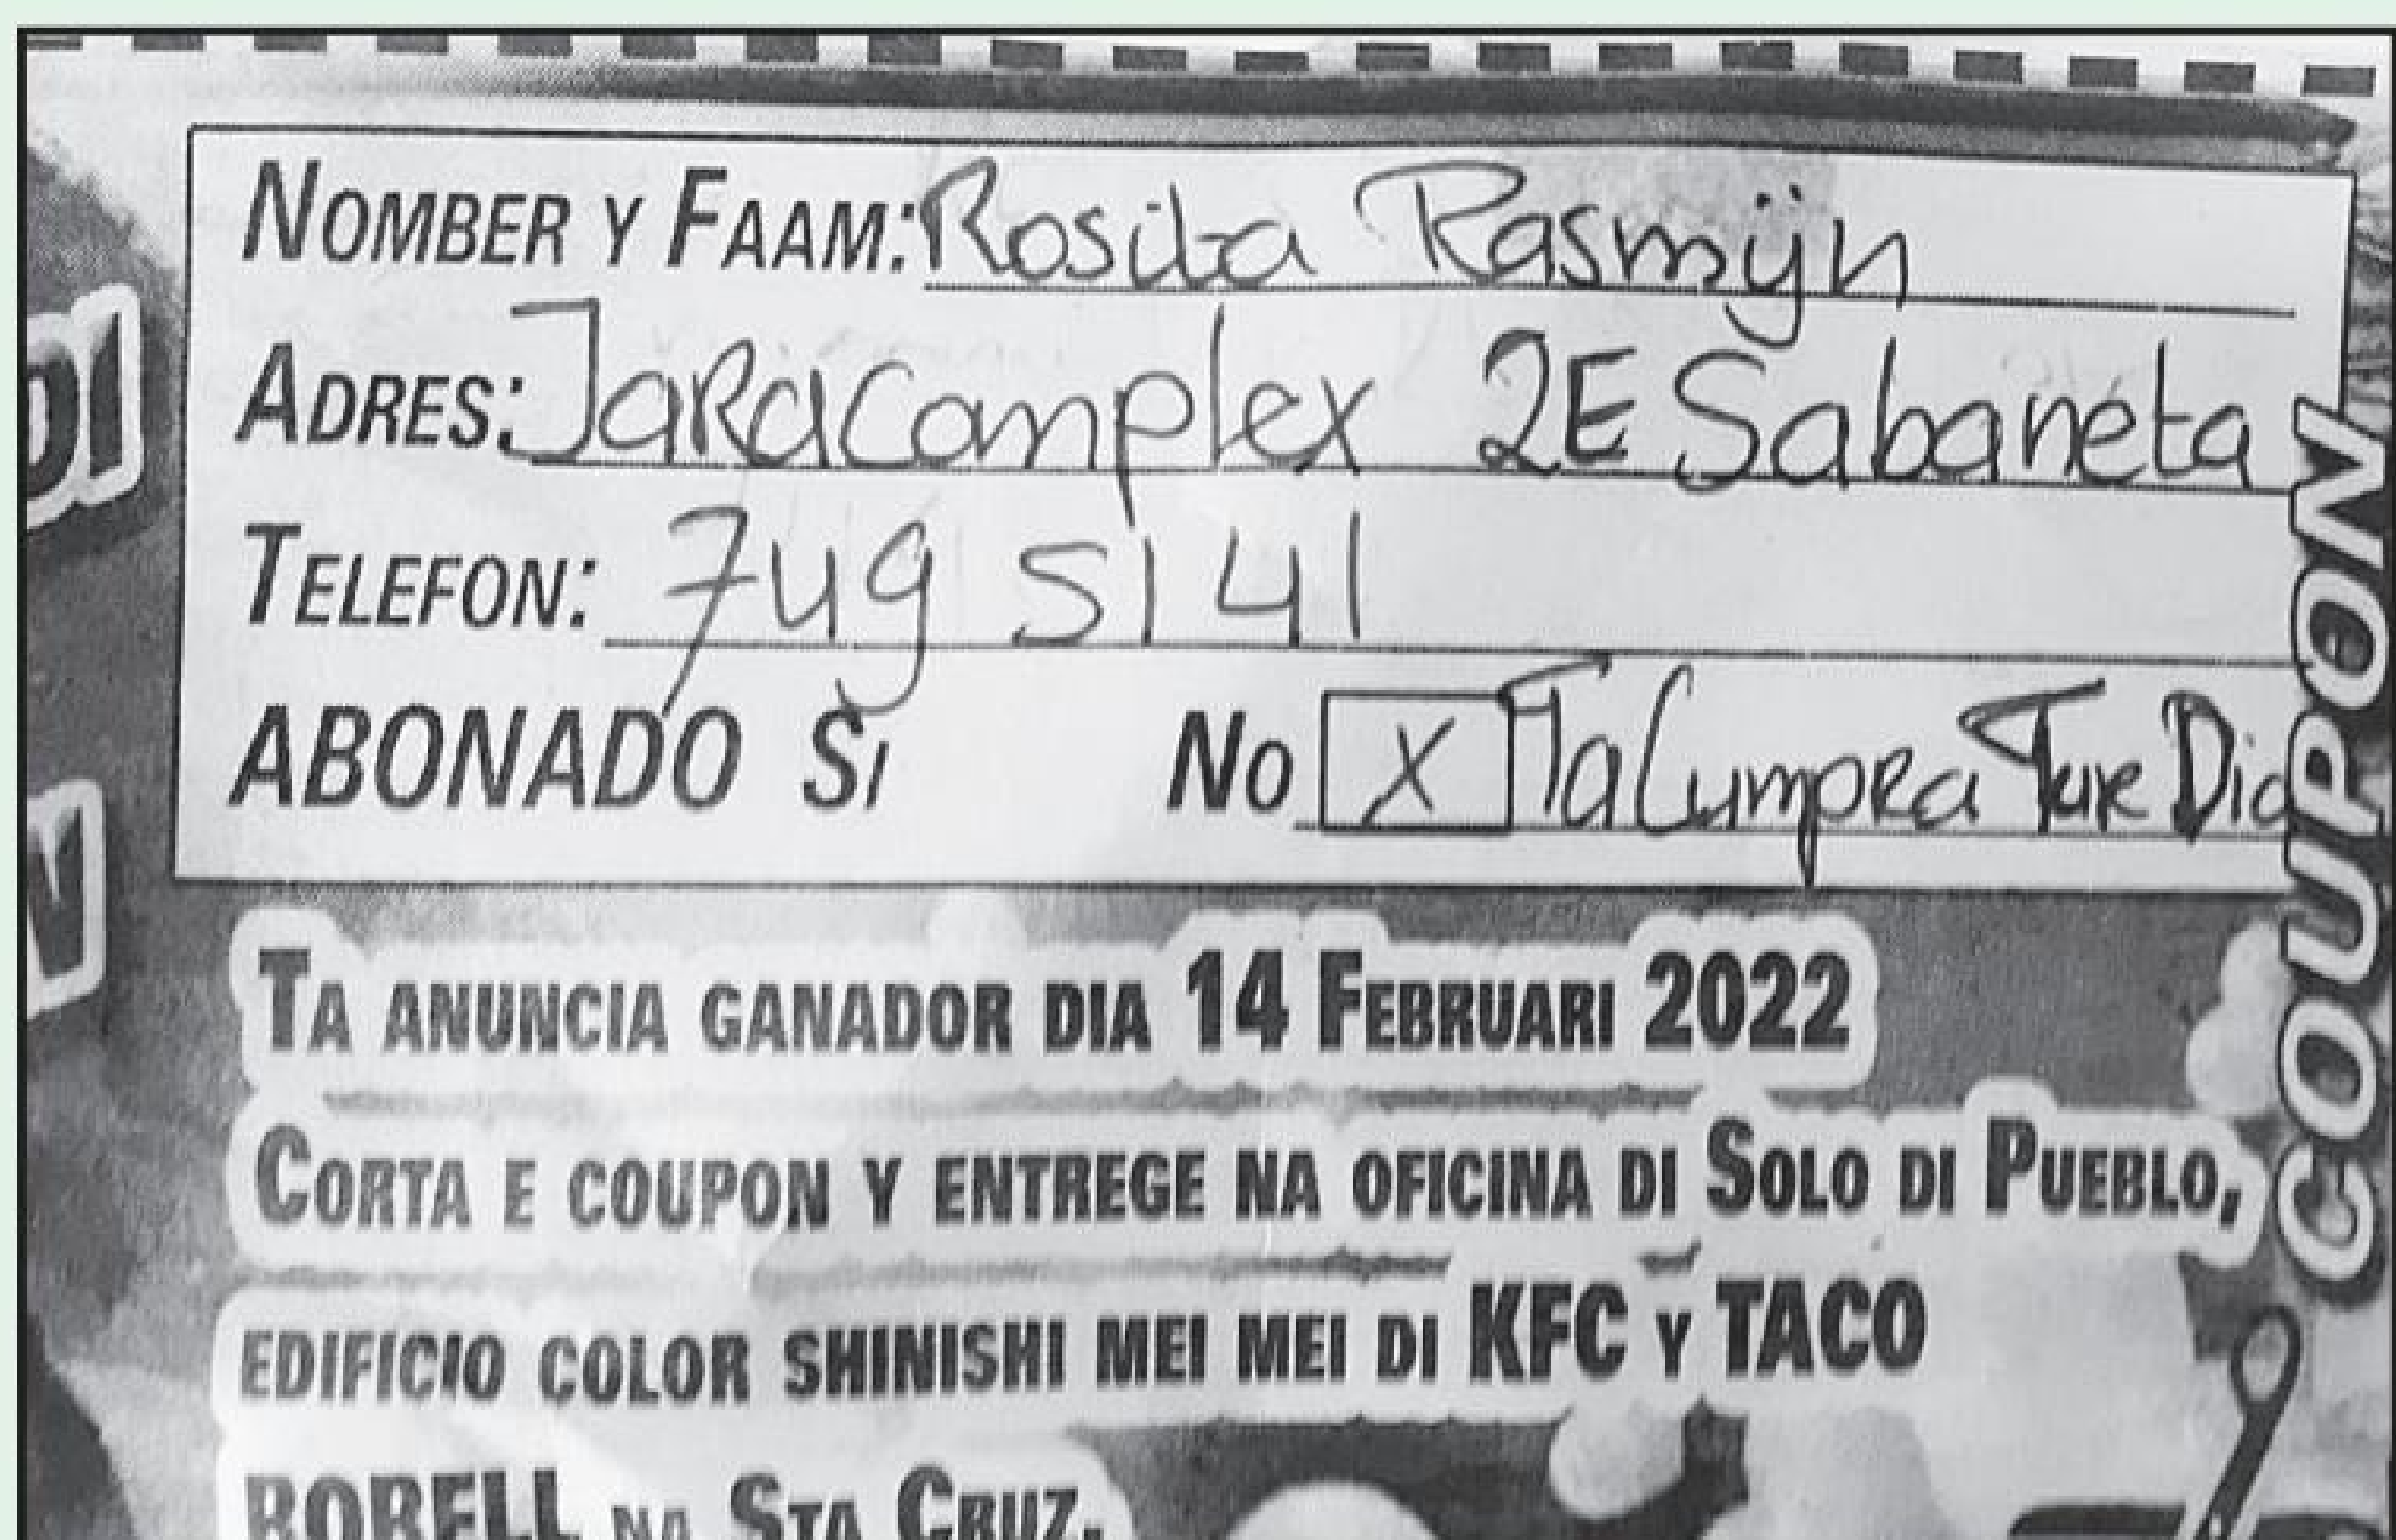 NOMBER Y FAAM: Rosita Rasmijn
ADRES: JaRaComplex 2E Sabaneta
TELEFON: 749 5141
ABONADO SI NO X Ta Cumpra Tur Dia
TA ANUNCIA GANADOR DIA 14 FEBRUARI 2022
CORTA E COUPON Y ENTREGE NA OFICINA DI SOLO DI PUEBLO,
EDIFICIO COLOR SHINISHI MEI MEI DI KFC Y TACO
BOBELL NA STA CRUZ.
COUPON